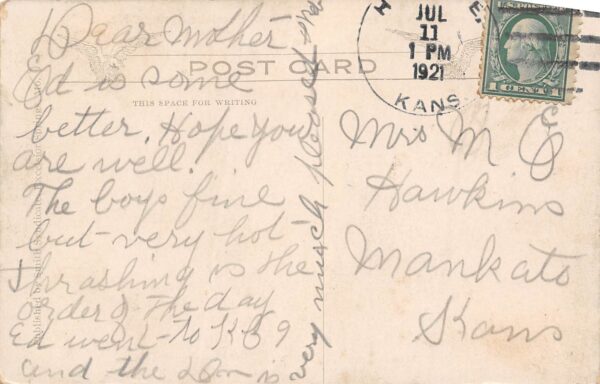 JUL
11
1 PM
1921
KANS
U.S. POSTAGE
1 CENT 1
POST CARD
THIS SPACE FOR WRITING
Dear Mother
Ed is some
better. Hope you
are well.
The boys fine
but very hot
Thrashing is the
order of the day
Ed went to K C 9
and the Dr is
very much pleased
Mrs M E
Hawkins
Mankato
Kans